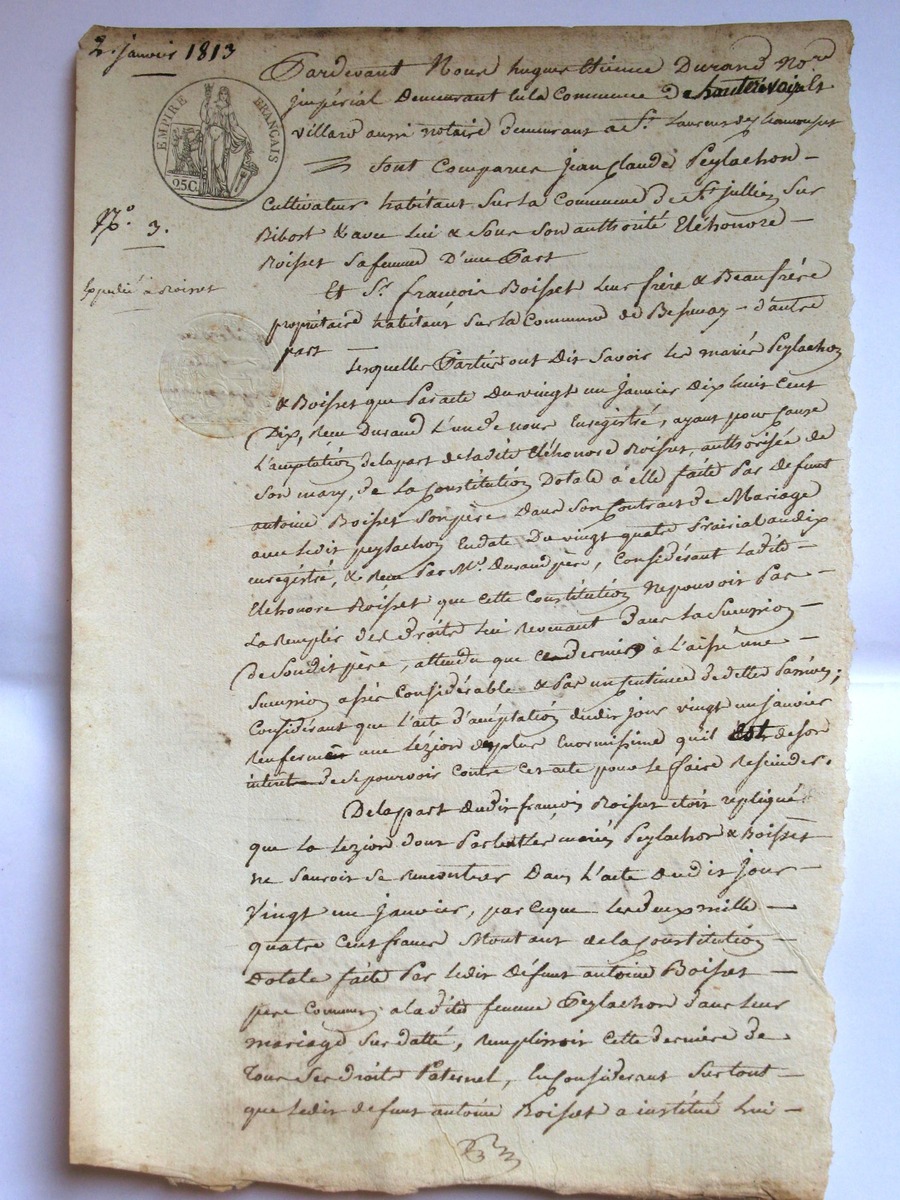 2. janvier 1813
EMPIRE FRANÇAIS
25C.
N.º 3.
Expedié à Boisset
Pardevant Nous hugues Etienne Durand No.re
impérial Demeurant en la Commune de hauterivoire Et
villard aussi notaire demeurant a S.t Laurent de Chamousset
Sont Comparus Jean Claude Peylachon –
Cultivateur habitant Sur la Commune de S.t jullien Sur
Bibost & avec Lui & Sous Son authorité Eléhonore –
Boisset Sa femme D'une Part
Et S.r françois Boisset Leur frère & Beaufrère
propriétaire habitant Sur la Commune de Bessenay – d'autre
part — Lesquelles Parties ont Dit Savoir Les mariés Peylachon
& Boisset que Par acte Du vingt un janvier Dix huit Cent
Dix, Reçu Durand L'un de nous Enregistré, ayant pour Cause
L'acceptation de la part de ladite Eléhonore Boisset, authorisée de
Son mary, de La Constitution Dotale à elle faite Par defunt
antoine Boisset Son père Dans Son Contrat de Mariage
avec Ledit peylachon En date Du vingt quatre Prairial an dix
enregistré, & Reçu Par M.e Durand père, Considérant Ladite –
Eléhonore Boisset que Cette Constitution Ne pouvoir Pas –
La Remplir des droits Lui Revenant Dans la Succession –
De Sondit père, attendu que Ce dernier à Laissé une –
Succession assés Considérable & Pas un Centime de dettes Passives;
Considérant que L'acte d'acceptation dudit jour vingt un janvier
Renfermoit une Lézion des plus Enormissime qu'il Est de son
intention de se pourvoir Contre Cet acte pour Le faire Rescinder.
De la part dudit françois Boisset étoit répliqué
que La Lézion dont Parlent Les mariés Peylachon & Boisset
ne Sauroit Se rencontrer Dans L'acte dudit jour –
Vingt un janvier, parceque Les deux mille –
quatre Cent francs Montant de la Constitution –
Dotale faite Par Ledit Défunt antoine Boisset –
père Commun, a ladite femme Peylachon dans Leur
mariage Sus datté, Remplissoit Cette dernière de
Tous Ses Droits Paternel, En Considerant Surtout –
que Ledit defunt antoine Boisset a institué Lui –